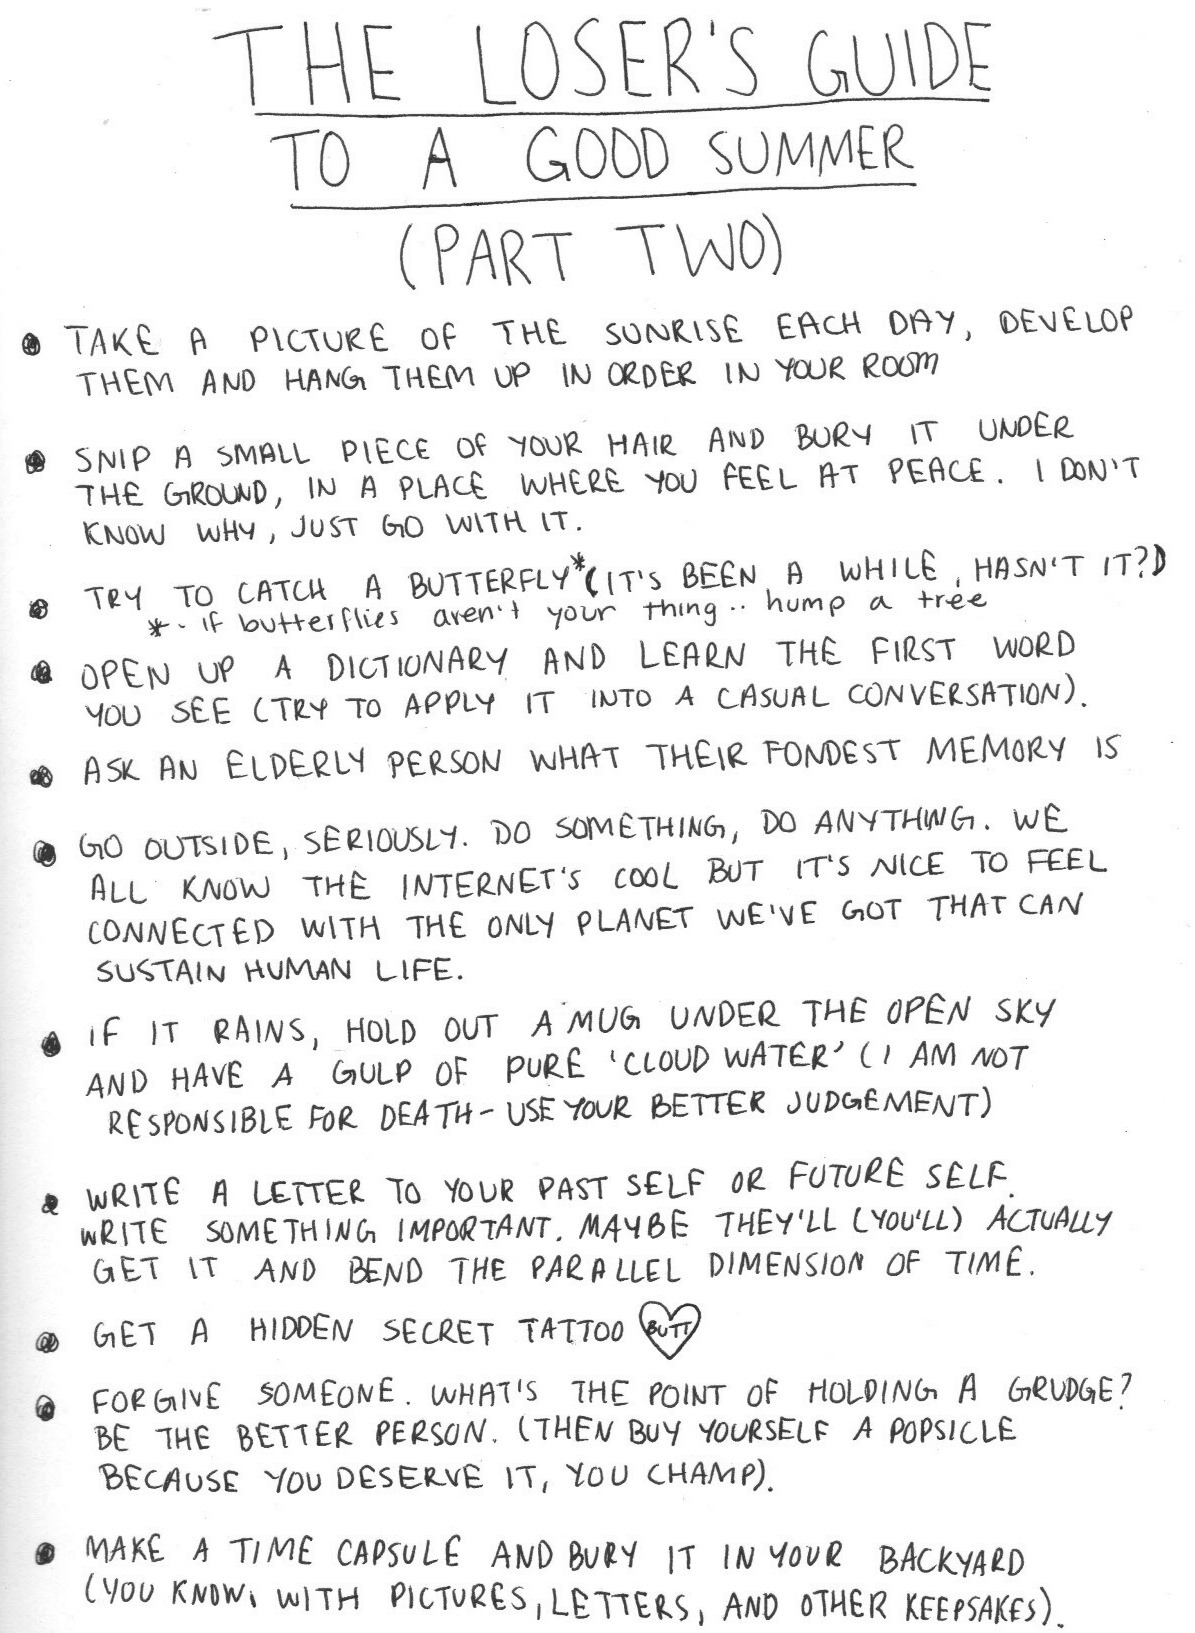 THE LOSER'S GUIDE
TO A GOOD SUMMER
(PART TWO)
• TAKE A PICTURE OF THE SUNRISE EACH DAY, DEVELOP
THEM AND HANG THEM UP IN ORDER IN YOUR ROOM
• SNIP A SMALL PIECE OF YOUR HAIR AND BURY IT UNDER
THE GROUND, IN A PLACE WHERE YOU FEEL AT PEACE. I DON'T
KNOW WHY, JUST GO WITH IT.
• TRY TO CATCH A BUTTERFLY* (IT'S BEEN A WHILE, HASN'T IT?)
*- if butterflies aren't your thing.. hump a tree
• OPEN UP A DICTIONARY AND LEARN THE FIRST WORD
YOU SEE (TRY TO APPLY IT INTO A CASUAL CONVERSATION).
• ASK AN ELDERLY PERSON WHAT THEIR FONDEST MEMORY IS
• GO OUTSIDE, SERIOUSLY. DO SOMETHING, DO ANYTHING. WE
ALL KNOW THE INTERNET'S COOL BUT IT'S NICE TO FEEL
CONNECTED WITH THE ONLY PLANET WE'VE GOT THAT CAN
SUSTAIN HUMAN LIFE.
• IF IT RAINS, HOLD OUT A MUG UNDER THE OPEN SKY
AND HAVE A GULP OF PURE 'CLOUD WATER' (I AM NOT
RESPONSIBLE FOR DEATH - USE YOUR BETTER JUDGEMENT)
• WRITE A LETTER TO YOUR PAST SELF OR FUTURE SELF.
WRITE SOMETHING IMPORTANT. MAYBE THEY'LL (YOU'LL) ACTUALLY
GET IT AND BEND THE PARALLEL DIMENSION OF TIME.
• GET A HIDDEN SECRET TATTOO BUTT
• FORGIVE SOMEONE. WHAT'S THE POINT OF HOLDING A GRUDGE?
BE THE BETTER PERSON. (THEN BUY YOURSELF A POPSICLE
BECAUSE YOU DESERVE IT, YOU CHAMP).
• MAKE A TIME CAPSULE AND BURY IT IN YOUR BACKYARD
(YOU KNOW, WITH PICTURES, LETTERS, AND OTHER KEEPSAKES).